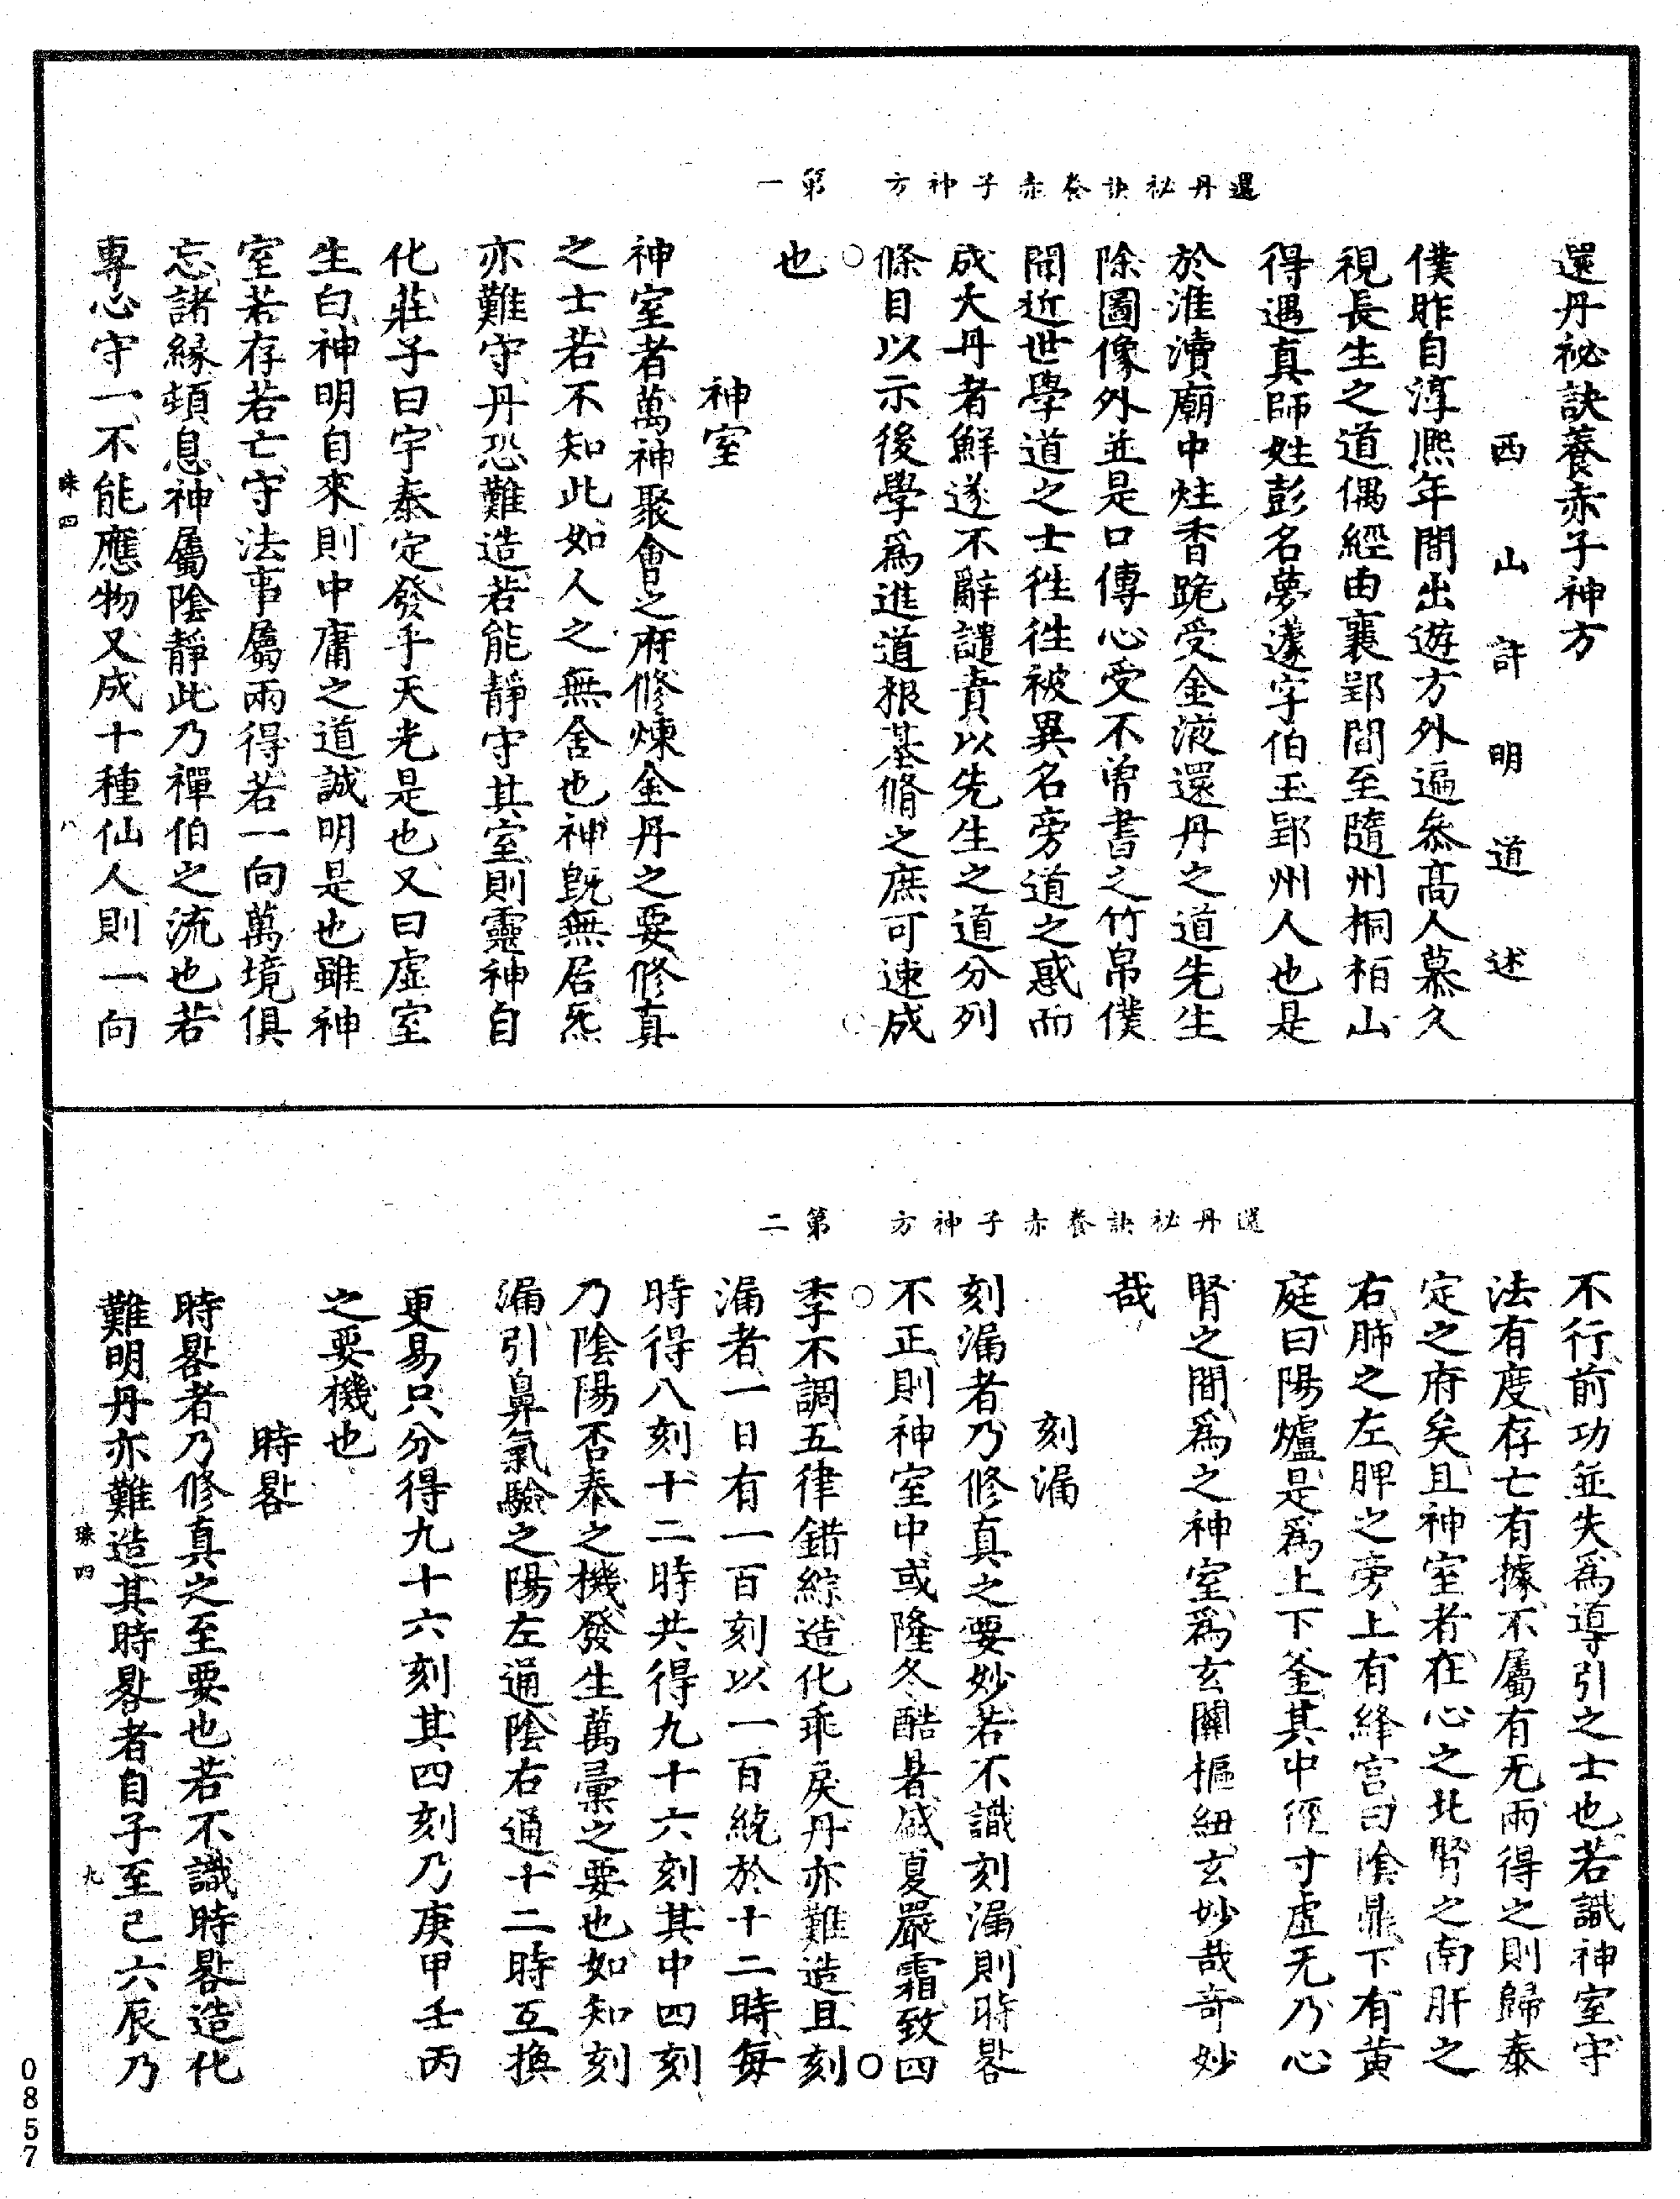 還丹祕訣養赤子神方　第一
還丹祕訣養赤子神方
西山許明道述
僕昨自淳熈年間出遊方外遍叅髙人慕久
視長生之道偶經由襄郢間至隨州桐栢山
得遇真師姓彭名夢蘧字伯玉郢州人也是
於淮瀆廟中炷香跪受金液還丹之道先生
除圖像外並是口傳心受不曽書之竹帛僕
閒近世學道之士徃徃被異名旁道之惑而
成大丹者鮮遂不辭譴責以先生之道分列
條目以示後學爲進道根基脩之庶可速成
也
神室
神室者萬神聚會之府修煉金丹之要修真
之士若不知此如人之無舍也神旣無居炁
亦難守丹恐難造若能靜守其室則靈神自
化莊子曰宇泰定發乎天光是也又曰虛室
生白神明自來則中庸之道誠明是也雖神
室若存若亡守法事屬兩得若一向萬境俱
忘諸緣頓息神屬陰靜此乃禪伯之流也若
專心守一不能應物又成十種仙人則一向
珠四　八
還丹祕訣養赤子神方　第二
不行前功並失爲導引之士也若識神室守
法有度存亡有據不屬有无兩得之則歸泰
定之府矣且神室者在心之北腎之南肝之
右肺之左脾之旁上有絳宫曰陰鼎下有黄
庭曰陽爐是爲上下釜其中徑寸虛无乃心
腎之間爲之神室爲玄關樞紐玄妙哉奇妙
哉
刻漏
刻漏者乃修真之要妙若不識刻漏則時晷
不正則神室中或隆冬酷暑盛夏嚴霜致四
季不調五律錯綜造化乖戾丹亦難造且刻
漏者一日有一百刻以一百統於十二時每
時得八刻十二時共得九十六刻其中四刻
乃陰陽否泰之機發生萬彚之要也如知刻
漏引鼻氣驗之陽左通陰右通十二時互換
更易只分得九十六刻其四刻乃庚甲壬丙
之要機也
時晷
時晷者乃修真之至要也若不識時晷造化
難明丹亦難造其時晷者自子至巳六辰乃
珠四　九
0857